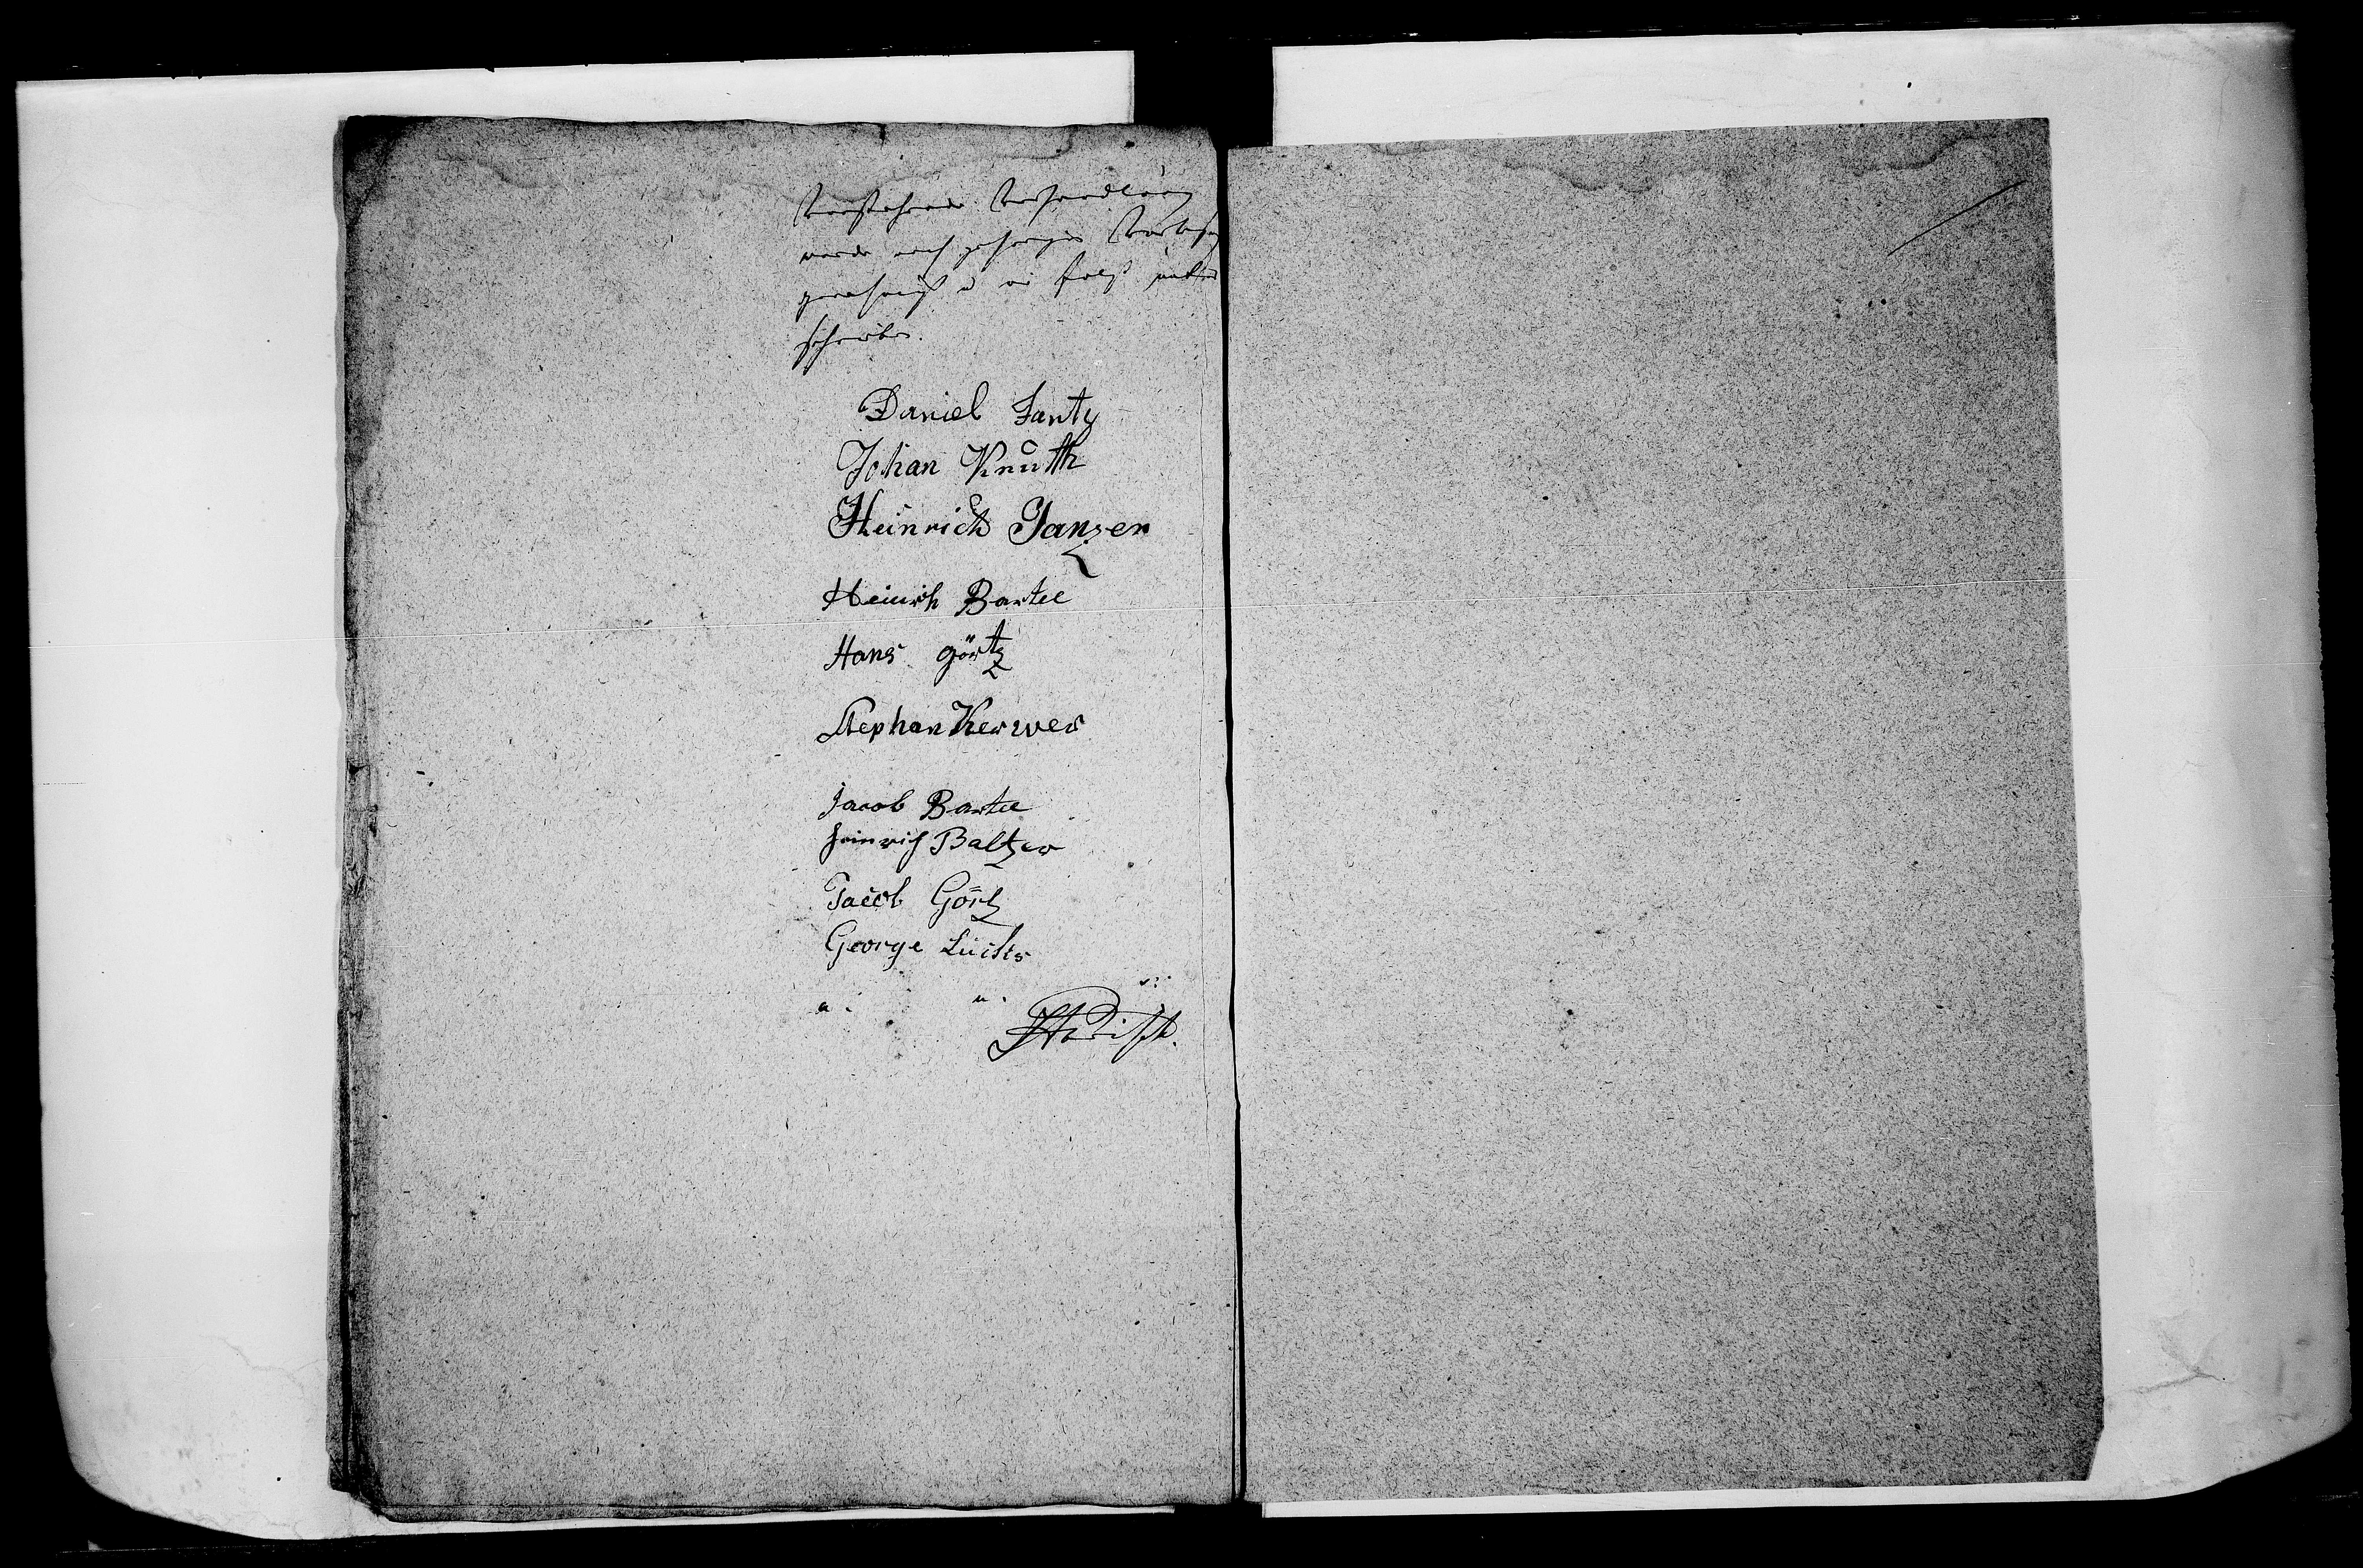 Vorstehende Verhandlung
wurde nach geschehener Vorlesung
genehmigt u wie folgt unter
schrieben.
Daniel Jantz
Johan Knuth
Heinrich Janzen
Heinrich Bartel
Hans görtz
Stephan Kerwer
Jacob Bartel
Heinrich Baltzer
Jacob Görtz
George Lüchts
a. u. s.